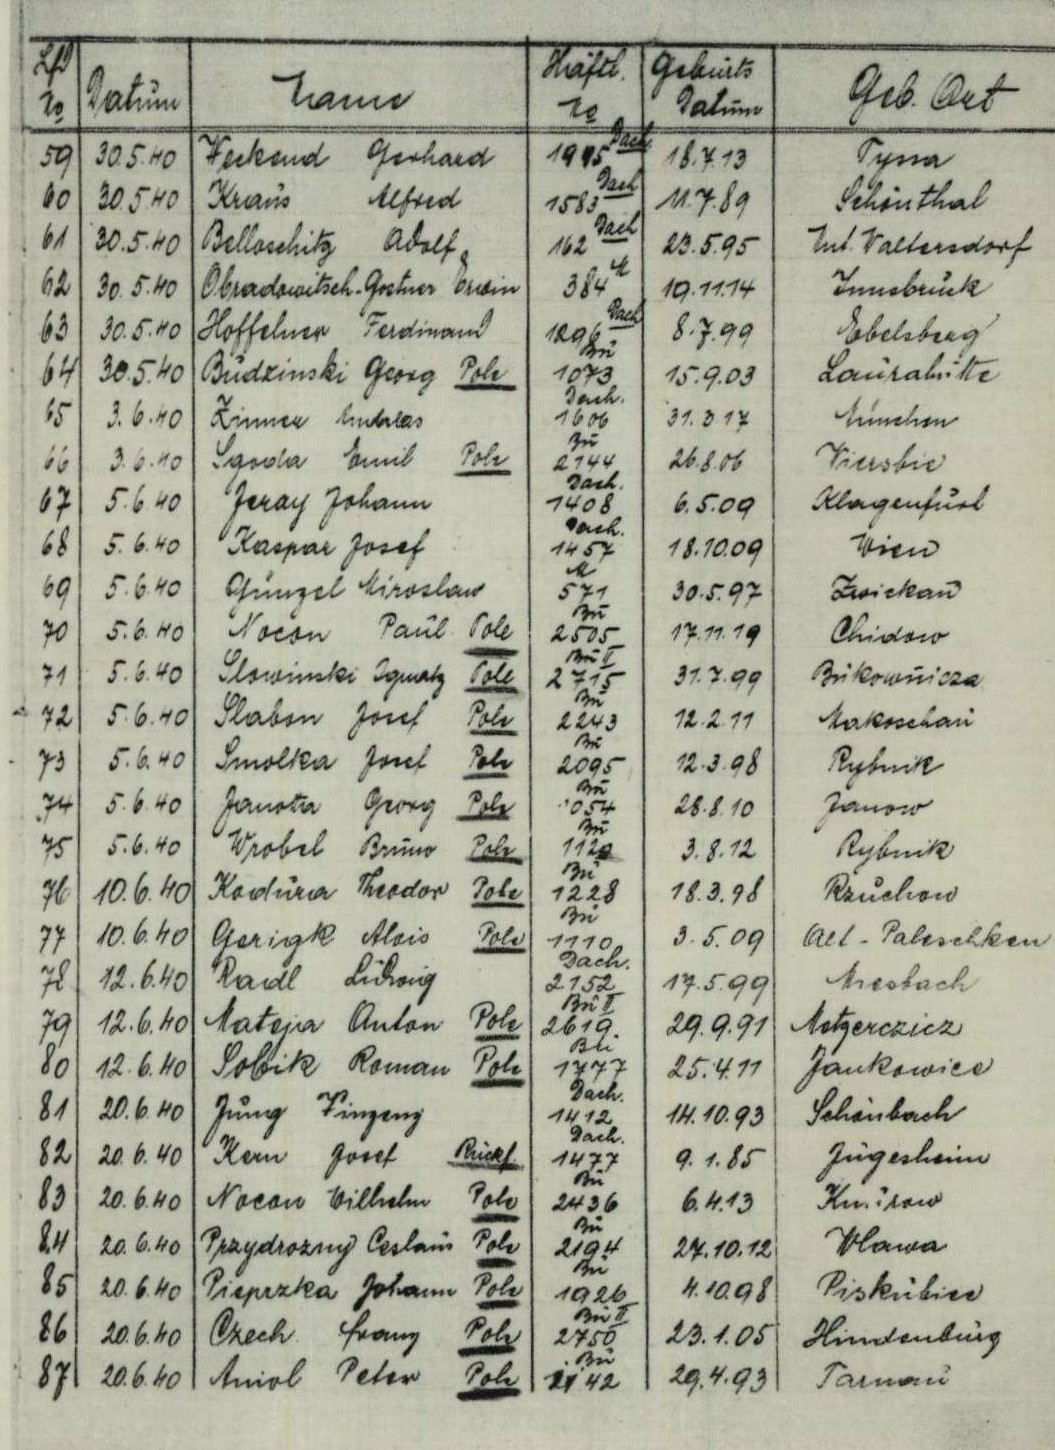 Lfd No Datum Name Häftl. No Geburts Datum Geb. Ort
59 30.5.40 Weckend Gerhard Dach 18.7.13 Tyssa
60 30.5.40 Kraus Alfred 1583 Dach 11.7.89 Schönthal
61 30.5.40 Belloschitz Adolf 162 Dach 23.5.95 Unt. Waltersdorf
62 30.5.40 Obradowitsch-Gostner Erwin 384 M 19.11.14 Innsbruck
63 30.5.40 Hoffelner Ferdinand 1296 Dach 8.7.99 Ebelsberg
64 30.5.40 Budzinski Georg Pole Bu 1073 15.9.03 Laurahütte
65 3.6.40 Zinner Andreas Dach. 1606 31.3.17 München
66 3.6.40 Sgoda Emil Pole Bu 2144 26.8.06 Viersbie
67 5.6.40 Jeray Johann Dach. 1408 6.5.09 Klagenfurt
68 5.6.40 Kaspar Josef Dach. 1457 18.10.09 Wien
69 5.6.40 Günzel Miroslaw M 571 30.5.97 Zwickau
70 5.6.40 Nocon Paul Pole Bu 2505 17.11.19 Chidow
71 5.6.40 Slowinski Ignatz Pole Bu II 2715 31.7.99 Bukownicza
72 5.6.40 Slabon Josef Pole Bu 2243 12.2.11 Makoschau
73 5.6.40 Smolka Josef Pole Bu 2095 12.3.98 Rybnik
74 5.6.40 Janota Georg Pole Bu 28.8.10 Janow
75 5.6.40 Wrobel Bruno Pole Bu 3.8.12 Rybnik
76 10.6.40 Kodura Theodor Pole Bu 1228 18.3.98 Rzuchow
77 10.6.40 Gerigk Alois Pole Bu 1110 3.5.09 Alt-Paleschken
78 12.6.40 Raidl Ludwig Dach. 2152 17.5.99 Miesbach
79 12.6.40 Mateja Anton Pole Bu II 2619. 29.9.91 Metzerczicz
80 12.6.40 Sobik Roman Pole Bu 1777 25.4.11 Jankowice
81 20.6.40 Jung Vinzenz Dach. 1412 14.10.93 Schönbach
82 20.6.40 Kern Josef Rückf. Dach. 1477 9.1.85 Jügesheim
83 20.6.40 Nocon Wilhelm Pole Bu 2436 6.4.13
84 20.6.40 Przydrozny Ceslaus Pole Bu 2194 27.10.12 Wlawa
85 20.6.40 Pieprzka Johann Pole Bu 1926 4.10.98 Piskubice
86 20.6.40 Czech Franz Pole Bu II 2750 23.1.05 Hindenburg
87 20.6.40 Aniol Peter Pole Bu 29.4.93 Tarnau